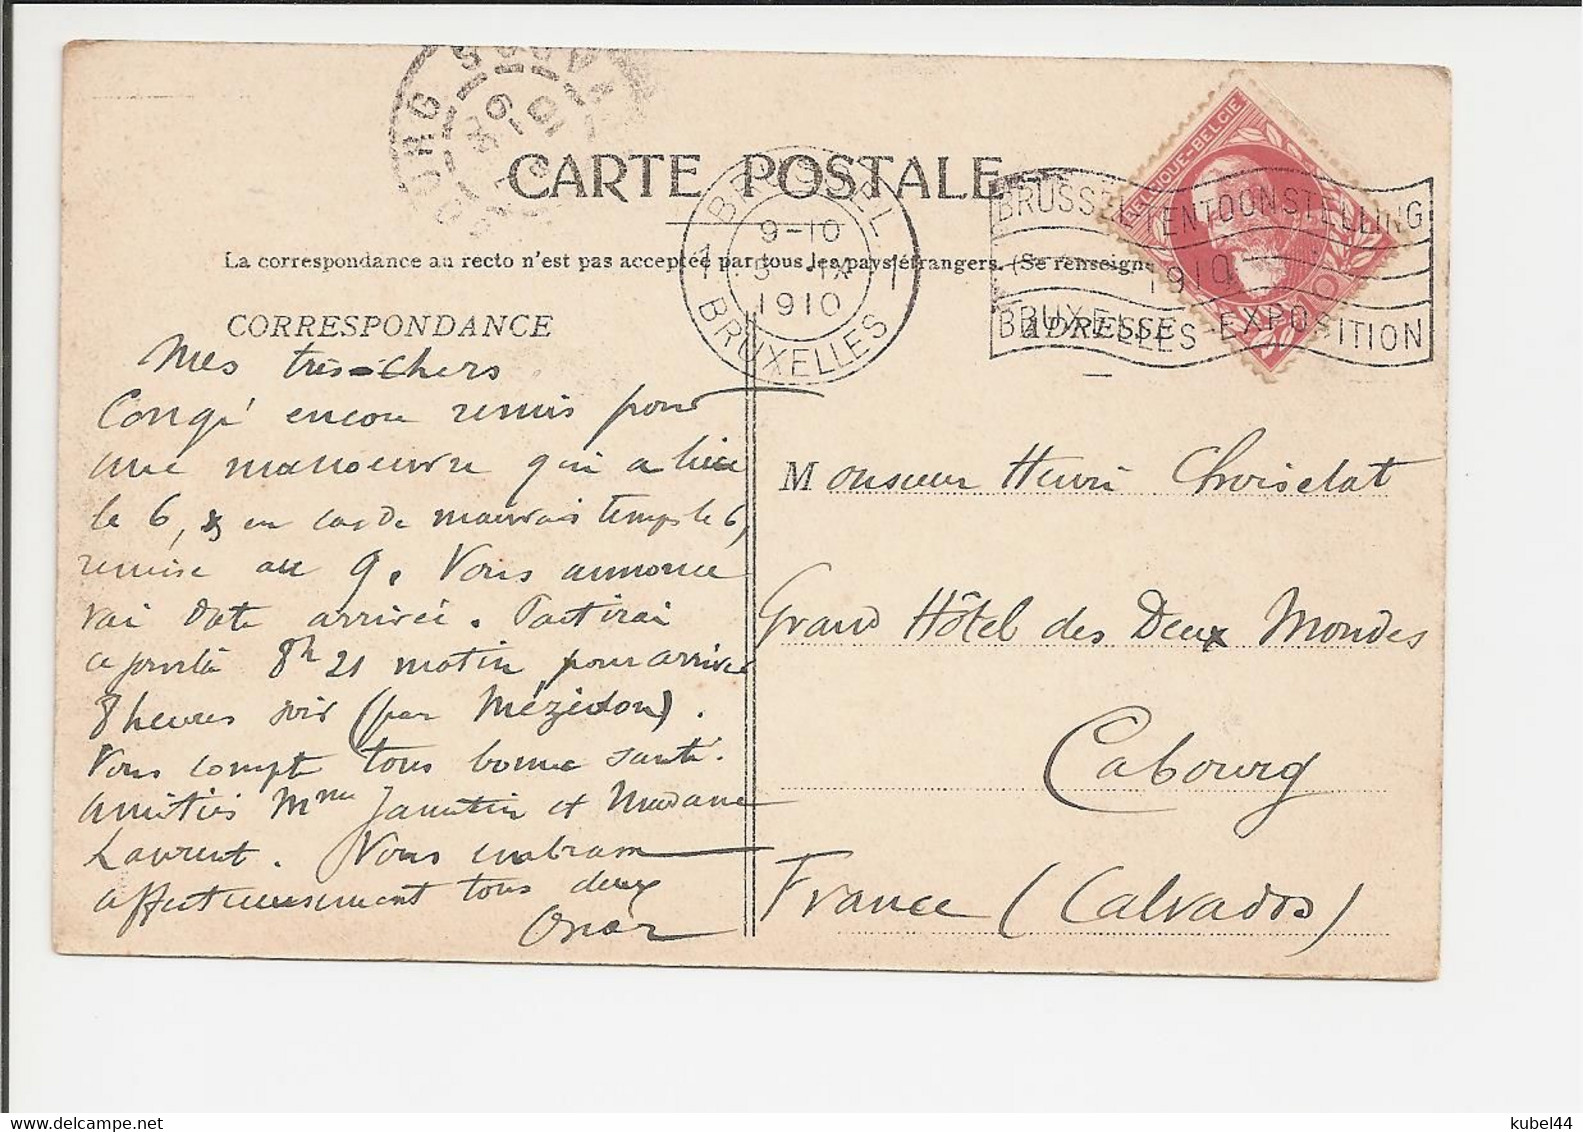 CARTE POSTALE
La correspondance au recto n'est pas acceptée par tous les pays étrangers. (Se renseigne
CORRESPONDANCE
ADRESSE
BRUSSEL
9-10
5 IX
1910
BRUXELLES
BRUSSEL TENTOONSTELLING
1910
BRUXELLES EXPOSITION
BELGIQUE-BELGIE
10
Mes très-chers
Congé encore remis pour
une manoeuvre qui a lieu
le 6, en cas de mauvais temps le 6,
remise au 9. Vous annonce
rai date arrivée. Partirai
8h 21 matin pour arriver
8 heures soir (par Mézidon).
Vous compte tous bonne santé.
Amitiés Mme et Madame
Laurent. Vous embrasse
affectueusement tous deux
Monsieur Henri Choiselat
Grand Hôtel des Deux Mondes
Cabourg
France (Calvados)
kubel44